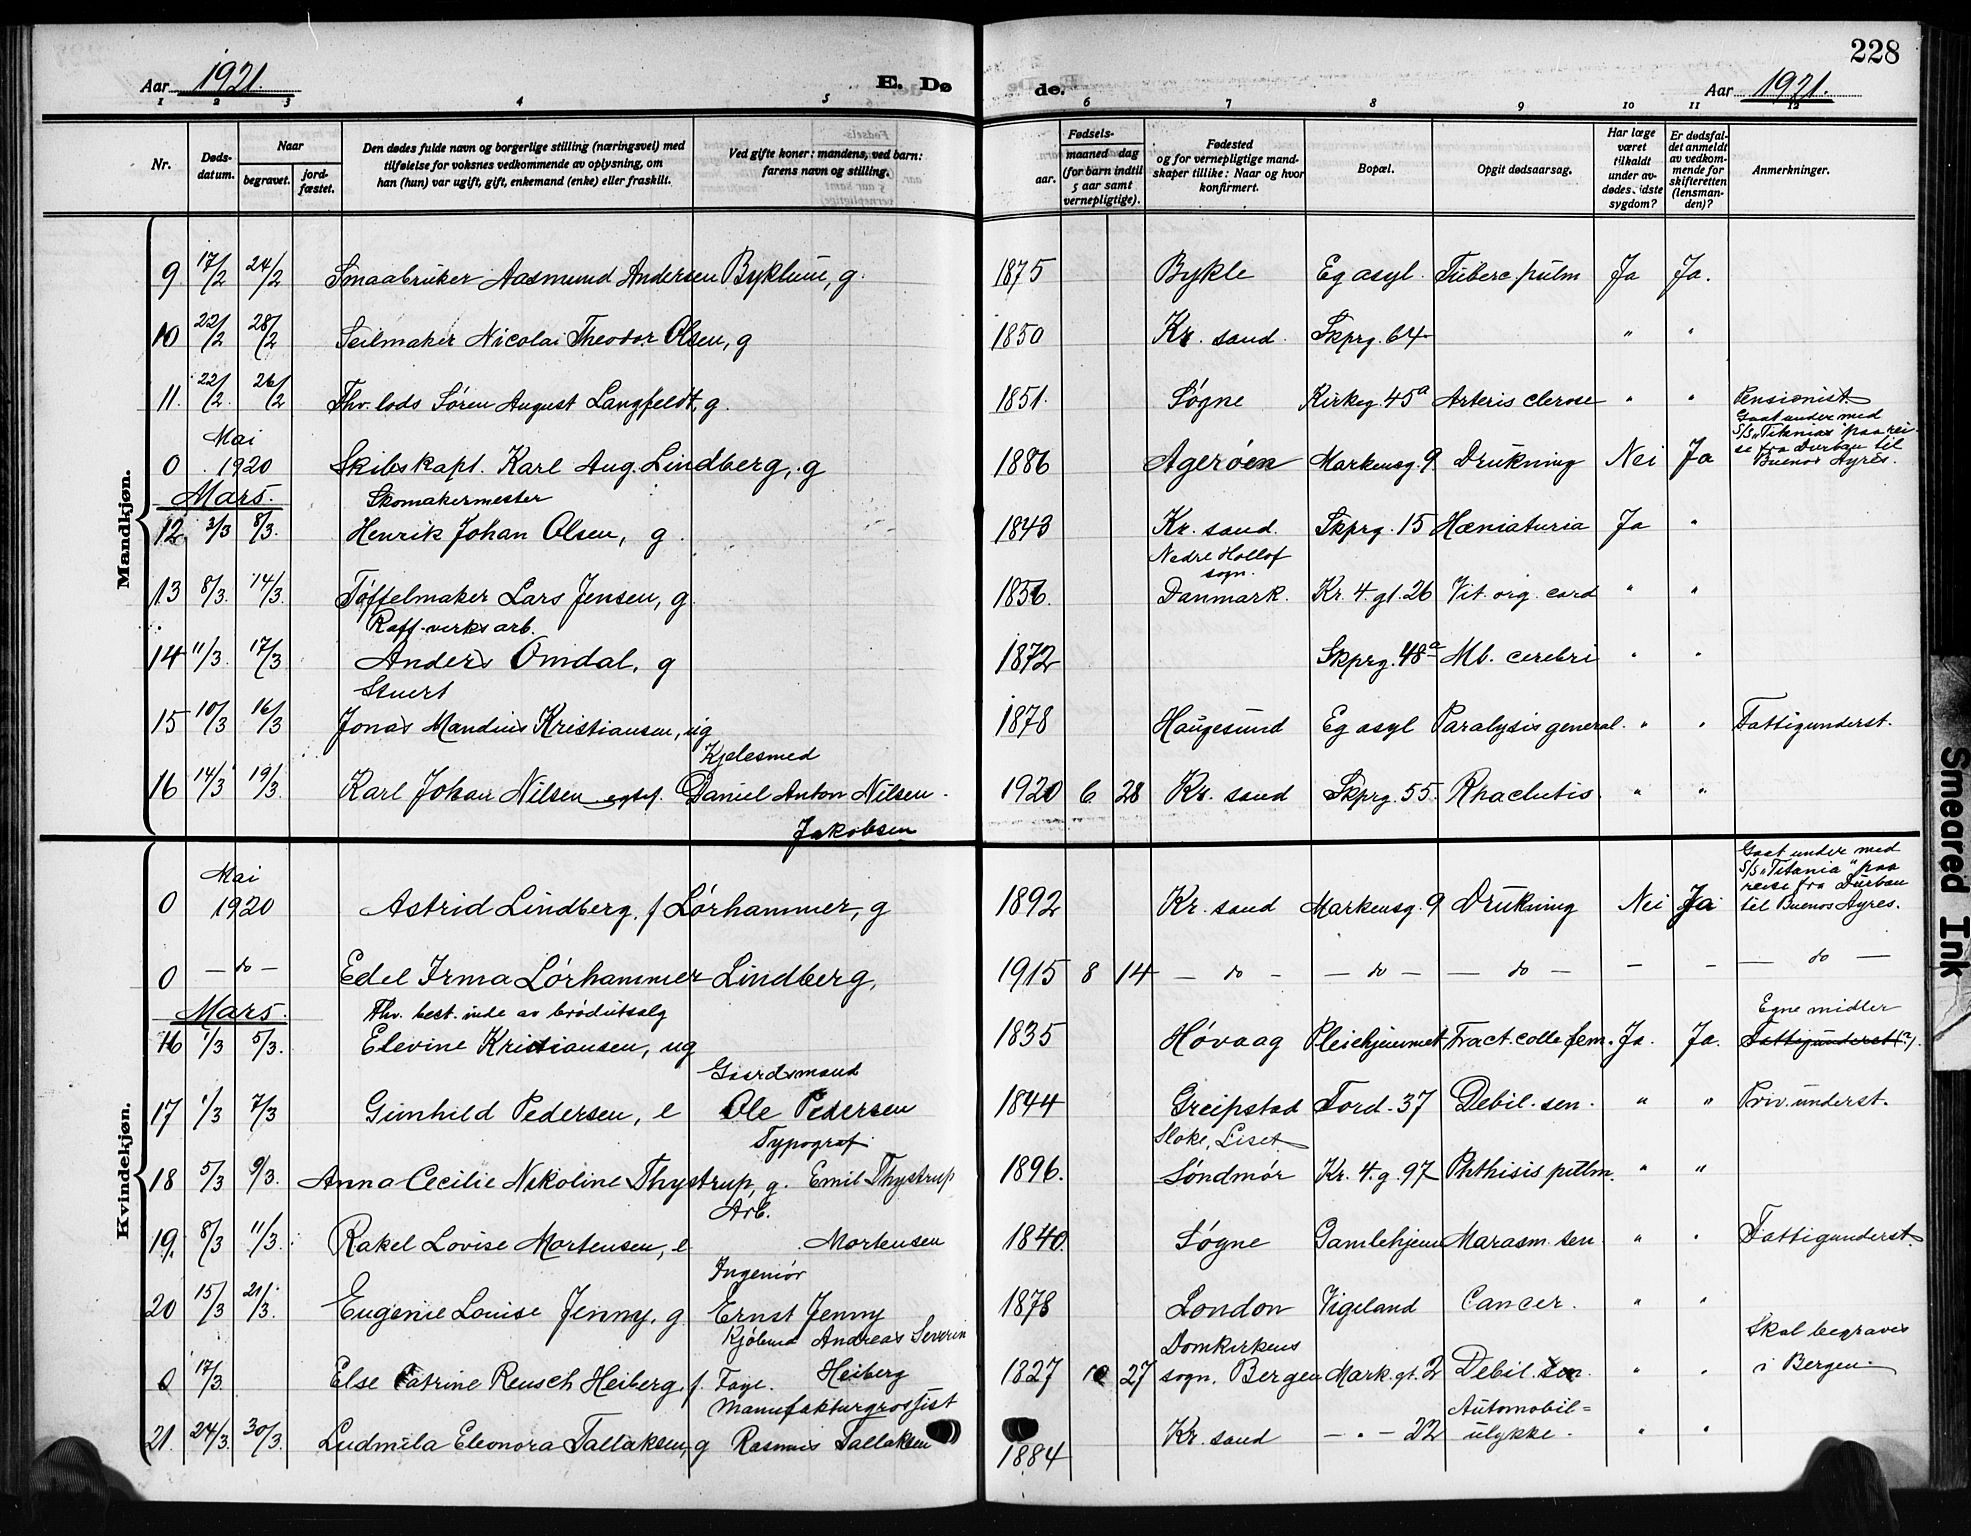 228
Aar 1921. E. Dø de. Aar 1921.
1 2 3 4 5 6 7 8 9 10 11 12
Nr. Døds-datum. Naar begravet. jord-fæstet. Den dødes fulde navn og borgerlige stilling (næringsvei) med tilføielse for voksnes vedkommende av oplysning, om han (hun) var ugift, gift, enkemand (enke) eller fraskilt. Ved gifte koner: mandens, ved barn: farens navn og stilling. Fødsels- aar. maaned dag (for barn indtil 5 aar samt vernepligtige). Fødested og for vernepligtige mand-skaper tillike: Naar og hvor konfirmert. Bopæl. Opgit dødsaarsag. Har læge været tilkaldt under av-dødes sidste sygdom? Er dødsfal-det anmeldt av vedkom-mende for skifteretten (lensman-den)? Anmerkninger.
Mandkjøn.
9 17/2 24/2 Smaabruker Aasmund Andersen Byklum, g. 1875 Bykle Eg asyl. Tuberc. pulm Ja Ja.
10 22/2 28/2 Seilmaker Nicolai Theodor Olsen, g 1850 Kr. sand. Skprg. 64 " "
11. 22/2. 26/2 Fhv. lods Søren August Langfeldt, g. 1851. Søgne Kirkeg. 45a Arteris clerose " " Pensionist.
0 Mai 1920 Skibskapt. Karl Aug. Lindberg, g 1886 Agerøen Markensg. 9 Drukning Nei Ja Gaat under med S/S "Titania" paa rei-se fra Durban til Buenos Ayres.
Mars.
Skomakermester
12 3/3 8/3. Henrik Johan Olsen, g. 1843 Kr. sand. Skprg. 15 Hæmaturia Ja "
Nedre Hollof sogn.
13 8/3. 14/3. Tøffelmaker Lars Jensen, g. 1856. Danmark. Kr. 4. gt. 26 Vit. org. cord " "
Raff-verks arb.
14 11/3. 17/3 Anders Omdal, g 1872 Skprg. 48a Mb. cerebri " "
Stuert
15 10/3 16/3 Jonas Mandius Kristiansen, ug 1878 Haugesund Eg asyl Paralysis general. " " Fattigunderst.
Kjelesmed
16 14/3 19/3. Karl Johan Nilsen egtef. Daniel Anton Nilsen. 1920 6 28 Kr. sand Skprg. 55. Rhachitis. " "
Jakobsen
Kvindekjøn.
0 Mai 1920 Astrid Lindberg. f Lørhammer, g 1892 Kr. sand Markensg. 9 Drukning Nei Ja Gaat under med S/S "Titania" paa reise fra Durban til Buenos Ayres.
0 — do — Edel Irma Lørhammer Lindberg, 1915 8 14 — do — — do — — do — — — — do —
Mars.
Fhv. best. inde av brødutsalg Egne midler
16 1/3 5/3. Elevine Kristiansen, ug 1835 Høvaag Pleiehjemmet Fract. colle fem. Ja. Ja. Fattigunderst (?).
Gaardsmand
17 1/3 7/3 Gunhild Pedersen, e Ole Pedersen 1844 Greipstad Tord. 37 Debil. sen. " " Priv. underst.
Typograf. Sloke, Liset
18 5/3 9/3. Anna Cecilie Nikoline Thystrup, g. Emil Thystrup 1896. Søndmør Kr. 4. g. 97 Phthisis pulm. " "
Arb.
19. 8/3 11/3. Rakel Lovise Mortensen, e Mortensen 1840. Søgne Gamlehjem Marasm. sen " " Fattigunderst.
Ingeniør
20 15/3 21/3. Eugenie Louise Jenny, g Ernst Jenny 1878 London Vigeland Cancer. " "
Kjøbmd Andreas Severin Domkirkens Skal begraves
0 17/3 Else Catrine Reusch Heiberg. f. Faye. Heiberg 1827 10 27 sogn. Bergen Mark. gt. 2 Debil. sen. " " i Bergen.
Manufakturgrossist Automobil-
21. 24/3. 30/3. Ludmila Eleonora Tallaksen, g Rasmus Tallaksen 1884 Kr. sand — " — 22 ulykke. " "
Smeared Ink